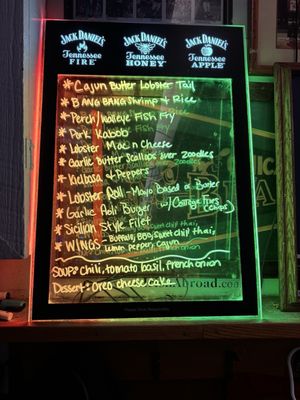 JACK DANIEL'S JACK DANIEL'S JACK DANIEL'S
Tennessee Tennessee Tennessee
FIRE HONEY APPLE
* Cajun Butter Lobster Tail
* BANG BANG Shrimp & Rice
* Perch/Walleye Fish Fry
* Pork Kabob
* Lobster Mac n Cheese
* Garlic Butter Scallops over Zoodles
* Kielbasa & Peppers
* Lobster Roll - Mayo Based or Butter
* Garlic Aoli Burger w/ Cottage Fries
(Chips)
* Sicilian Style Filet
* WINGS - Buffalo, BBQ, Sweet chili thai,
lemon pepper, cajun
Soups: Chili, tomato basil, french onion
Dessert: Oreo cheese cake
Abroad.com